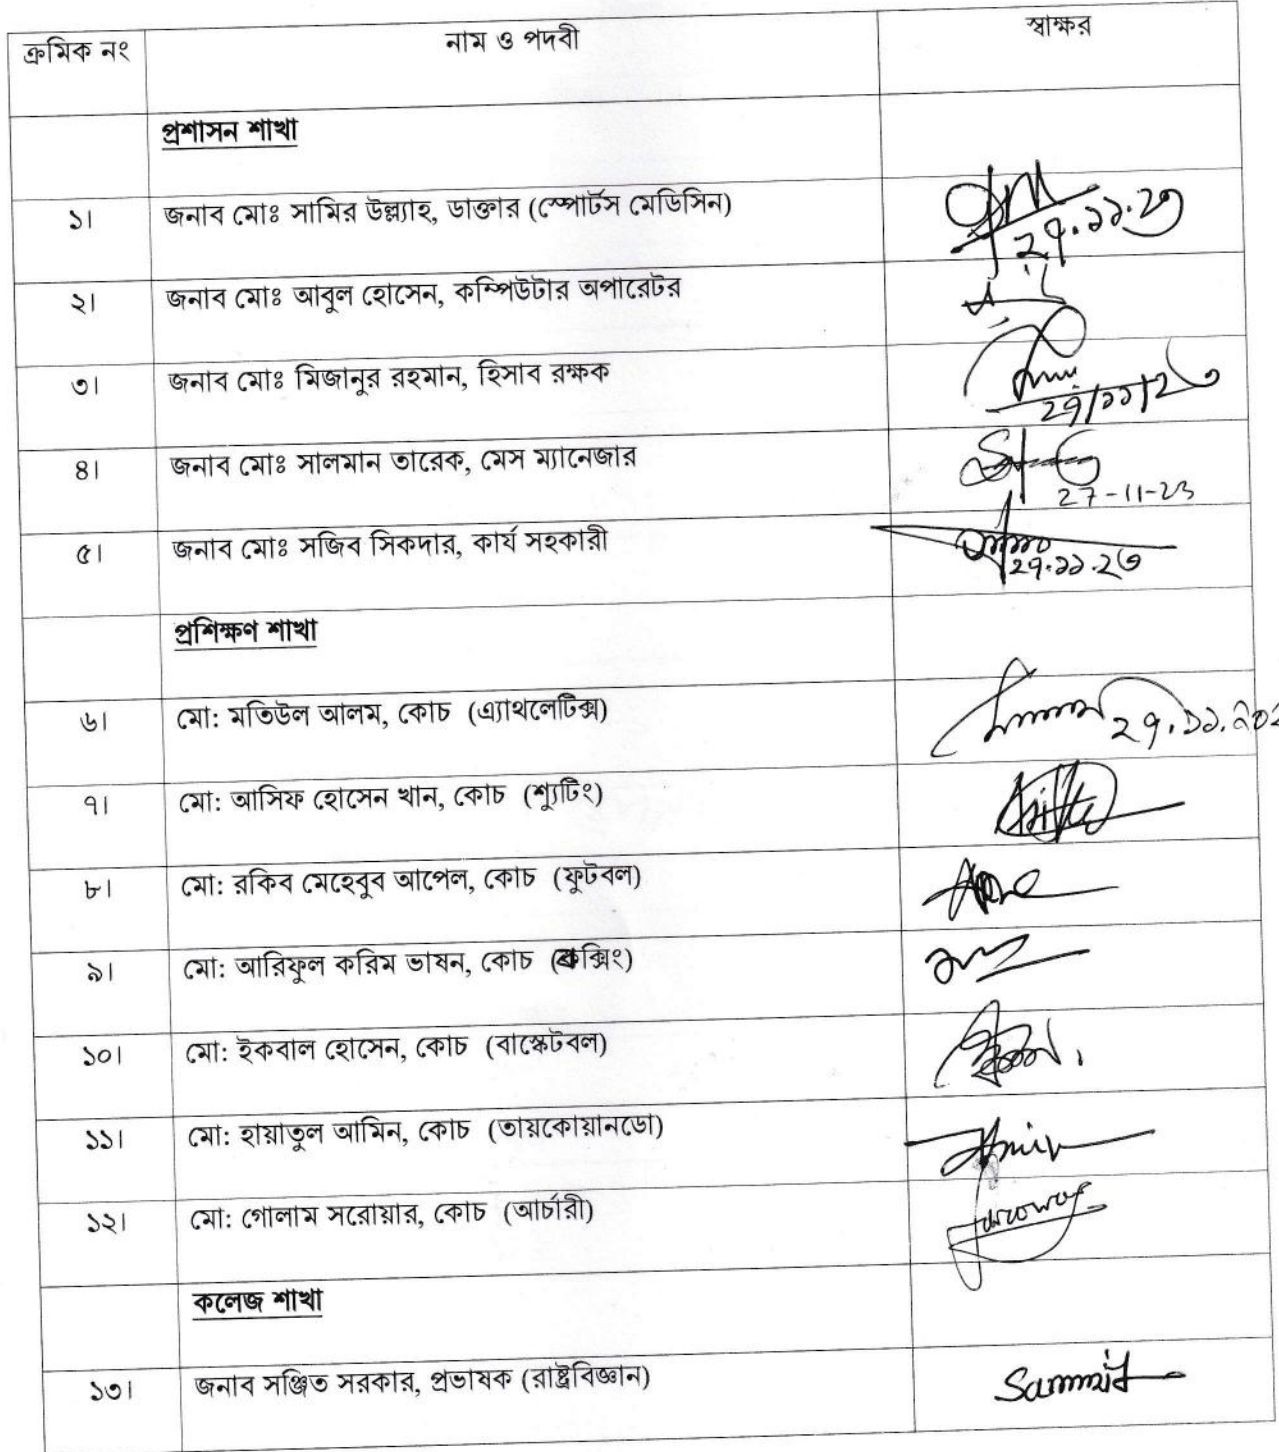 ক্রমিক নং নাম ও পদবী স্বাক্ষর
প্রশাসন শাখা
১। জনাব মোঃ সামির উল্ল্যাহ, ডাক্তার (স্পোর্টস মেডিসিন) ২৭.১১.২৩
২। জনাব মোঃ আবুল হোসেন, কম্পিউটার অপারেটর
৩। জনাব মোঃ মিজানুর রহমান, হিসাব রক্ষক ২৭/১১/২৩
৪। জনাব মোঃ সালমান তারেক, মেস ম্যানেজার 27-11-23
৫। জনাব মোঃ সজিব সিকদার, কার্য সহকারী ২৭.১১.২৩
প্রশিক্ষণ শাখা
৬। মো: মতিউল আলম, কোচ (এ্যাথলেটিক্স) ২৭.১১.২০২
৭। মো: আসিফ হোসেন খান, কোচ (শ্যুটিং)
৮। মো: রকিব মেহেবুব আপেল, কোচ (ফুটবল)
৯। মো: আরিফুল করিম ভাষন, কোচ (বক্সিং)
১০। মো: ইকবাল হোসেন, কোচ (বাস্কেটবল)
১১। মো: হায়াতুল আমিন, কোচ (তায়কোয়ানডো) Amin
১২। মো: গোলাম সরোয়ার, কোচ (আর্চারী)
কলেজ শাখা
১৩। জনাব সঞ্জিত সরকার, প্রভাষক (রাষ্ট্রবিজ্ঞান)